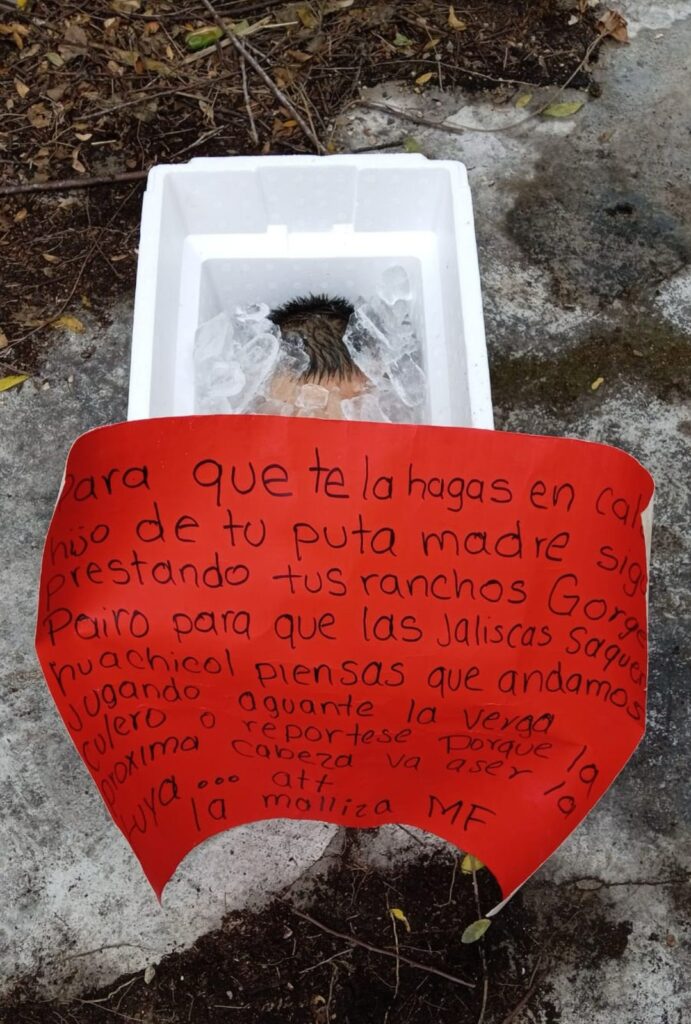 Para que te la hagas en cal
hijo de tu puta madre sigu
prestando tus ranchos Gorge
Pairo para que las Jaliscas saquen
huachicol piensas que andamos
Jugando aguante la verga
culero o reportese porque la
proxima cabeza va aser la
tuya... att
la malliza MF